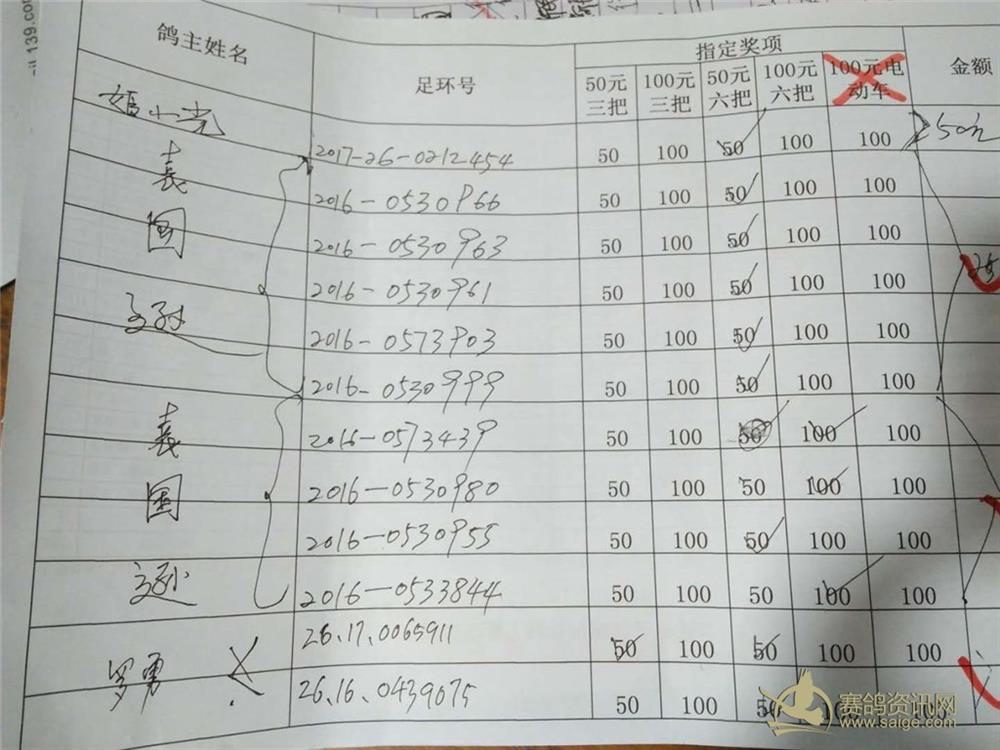 il.139.com
鸽主姓名 足环号 指定奖项 金额
50元三把 100元三把 50元六把 100元六把 100元电动车
2017-26-0212454 50 100 50 100 100 250元
袁国 2016-0530966 50 100 50 100 100
2016-0530963 50 100 50 100 100
2016-0530961 50 100 50 100 100
2016-0573903 50 100 50 100 100
2016-0530999 50 100 50 100 100
袁国 2016-0573439 50 100 50 100 100
2016-0530980 50 100 50 100 100
2016-0530955 50 100 50 100 100
2016-0533844 50 100 50 100 100
罗勇 26.17.0065911 50 100 50 100 100
26.16.0439075 50 100 50 100 100
赛鸽资讯网
www.saige.com